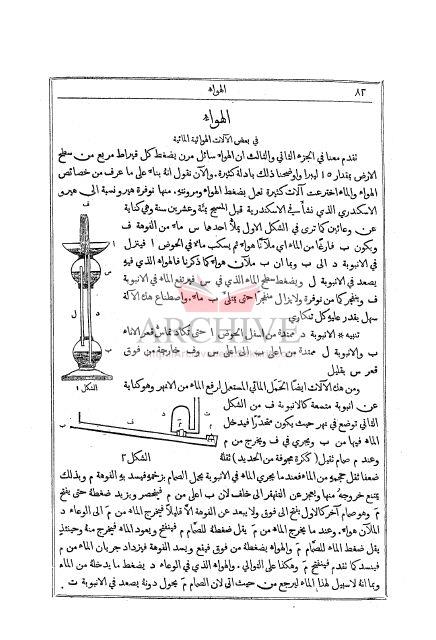 ٨٢
الهواء
الهواء
في بعض الآلات الهوائية المائية
تقدم معنا في الجزء الثاني والثالث ان الهواء سائل مرن يضغط كل قيراط مربع من سطح
الارض بمقدار ١٥ ليبرا واوضحنا ذلك بادلة كثيرة. والآن نقول انه بناء على ما عرف من خصائص
الهواء والماء اخترعت آلات كثيرة تعمل بضغط الهواء ومرونته. منها نوفرة هيرو نسبة الى هيرو
الاسكندري الذي نشأ في الاسكندرية قبل المسيح بمئة وعشرين سنة وهي كناية
عن وعائين كما ترى في الشكل الاول يملأ احدها س من الفوهة ف
ويكون ب فارغا من الماء اي ملآنا هواء ثم يسكب ماء في الحوض ا فينزل
في الانبوبة د الى ب وبما ان ب ملآن هواء كما ذكرنا فالهواء الذي فيه
يصعد في الانبوبة ل ويضغط سطح الماء الذي في س فيرتفع الماء في الانبوبة
ف وينفجر كما من نوفرة ولا يزال منفجرا حتى يمتلئ ب ماء. واصطناع هذه الآلة
سهل يقدر عليه كل تنكاري
تنبيه * الانبوبة د ممتدة من اسفل الحوض ا حتى تكاد تماس قعر الاناء
ب والانبوبة ل ممتدة من اعلى ب الى اعلى س وف خارجة من فوق
قعر س بقليل
الشكل ١
ومن هذه الآلات ايضا الحمل المائي المستعمل لرفع الماء من الانهر وهو كناية
عن انبوبة متسعة كالانبوبة ف من الشكل
الثاني توضع في نهر حيث يكون متحدرا فيدخل
الماء فيها من ب ويجري في ف ويخرج من م
وعند م صمام ثقيل (ككرة مجوفة من الحديد) ثقلة
الشكل ٢
ضعفا ثقل حجمه من الماء فعندما يجري الماء في الانبوبة يحمل الصمام بزخمه فيسد به الفوهة م وبذلك
يمتنع خروجه منها ويعجز عن التقهقر الى خلف لان ب اعلى من م فينحصر ويزيد ضغطه حتى يفتح
م وهو صمام آخر كالاول ينفتح الى فوق ولا يبعد عن الفوهة الا قليلا فيخرج الماء من م الى الوعاء د
الملآن هواء. وعند ما يخرج الماء من م يقل ضغطه للصمام م فينفتح ويعود الماء فيخرج منه وحينئذ
يقل ضغط الماء للصمام م والهواء يضغطه من فوق فيقع ويسد الفوهة فيزداد جريان الماء من م
فينسد كما تقدم فينفتح م وهكذا على التوالي. والهواء الذي في الوعاء د يضغط ما يدخله من الماء
وبما انه لا سبيل لهذا الماء ليرجع من حيث اتى لان الصمام م يحول دونه يصعد في الانبوبة ت
ARCHIVE